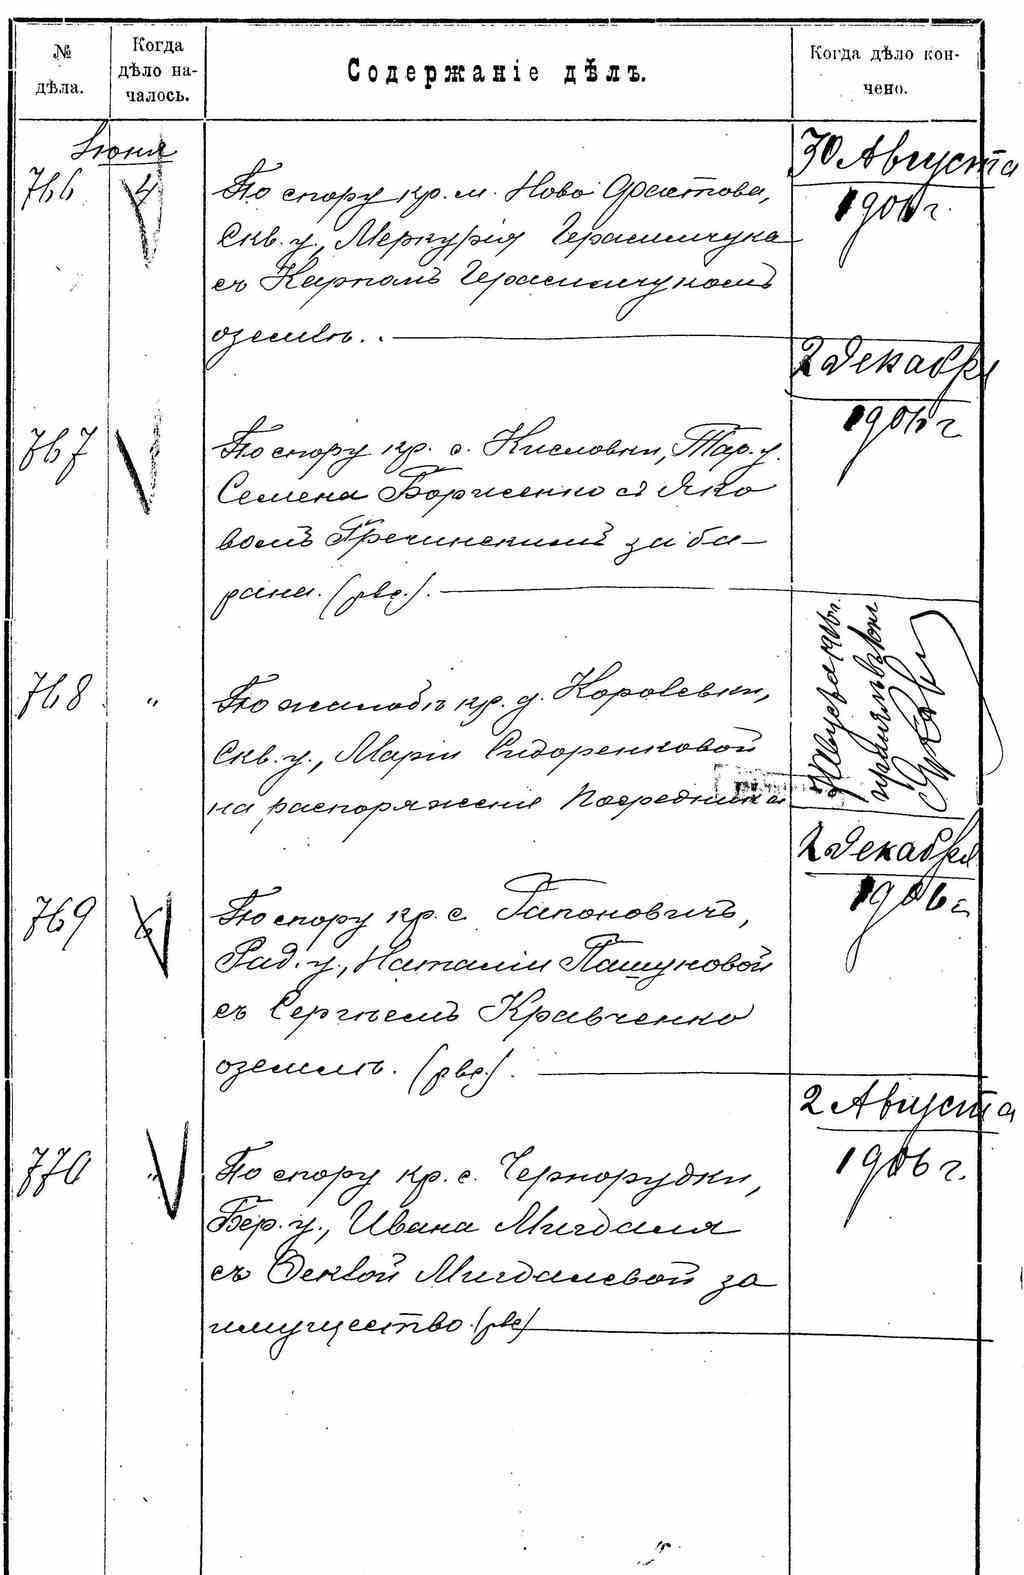 №
дѣла.
Когда
дѣло на-
чалось.
Содержаніе дѣлъ.
Когда дѣло кон-
чено.
Іюня
766 4
По спору кр. м. Ново Фастова,
Скв. у., Меркурія Герасимчука
съ Карпомъ Герасимчукомъ
о землѣ.
30 Августа
1906 г.
767
По спору кр. с. Кисловки, Тар. у.
Семена Борисенко съ Яко
вомъ Гречинскимъ за ба-
рана. (рвс.).
2 Декабря
1906 г
768 "
По жалобѣ кр. д. Королевки,
Скв. у., Маріи Сидоренковой
на распоряженіе Посредника
Августа 1906 г.
769 6
По спору кр. с. Гапоновичъ,
Рад. у., Наталіи Пашуковой
съ Сергѣемъ Кравченко
о землѣ. (рвс.).
2 Декабря
1906 г.
770 "
По спору кр. с. Чернорудки,
Бер. у., Ивана Мигдаля
съ Феклой Мигдалевой за
имущество. (рвс)
2 Августа
1906 г.